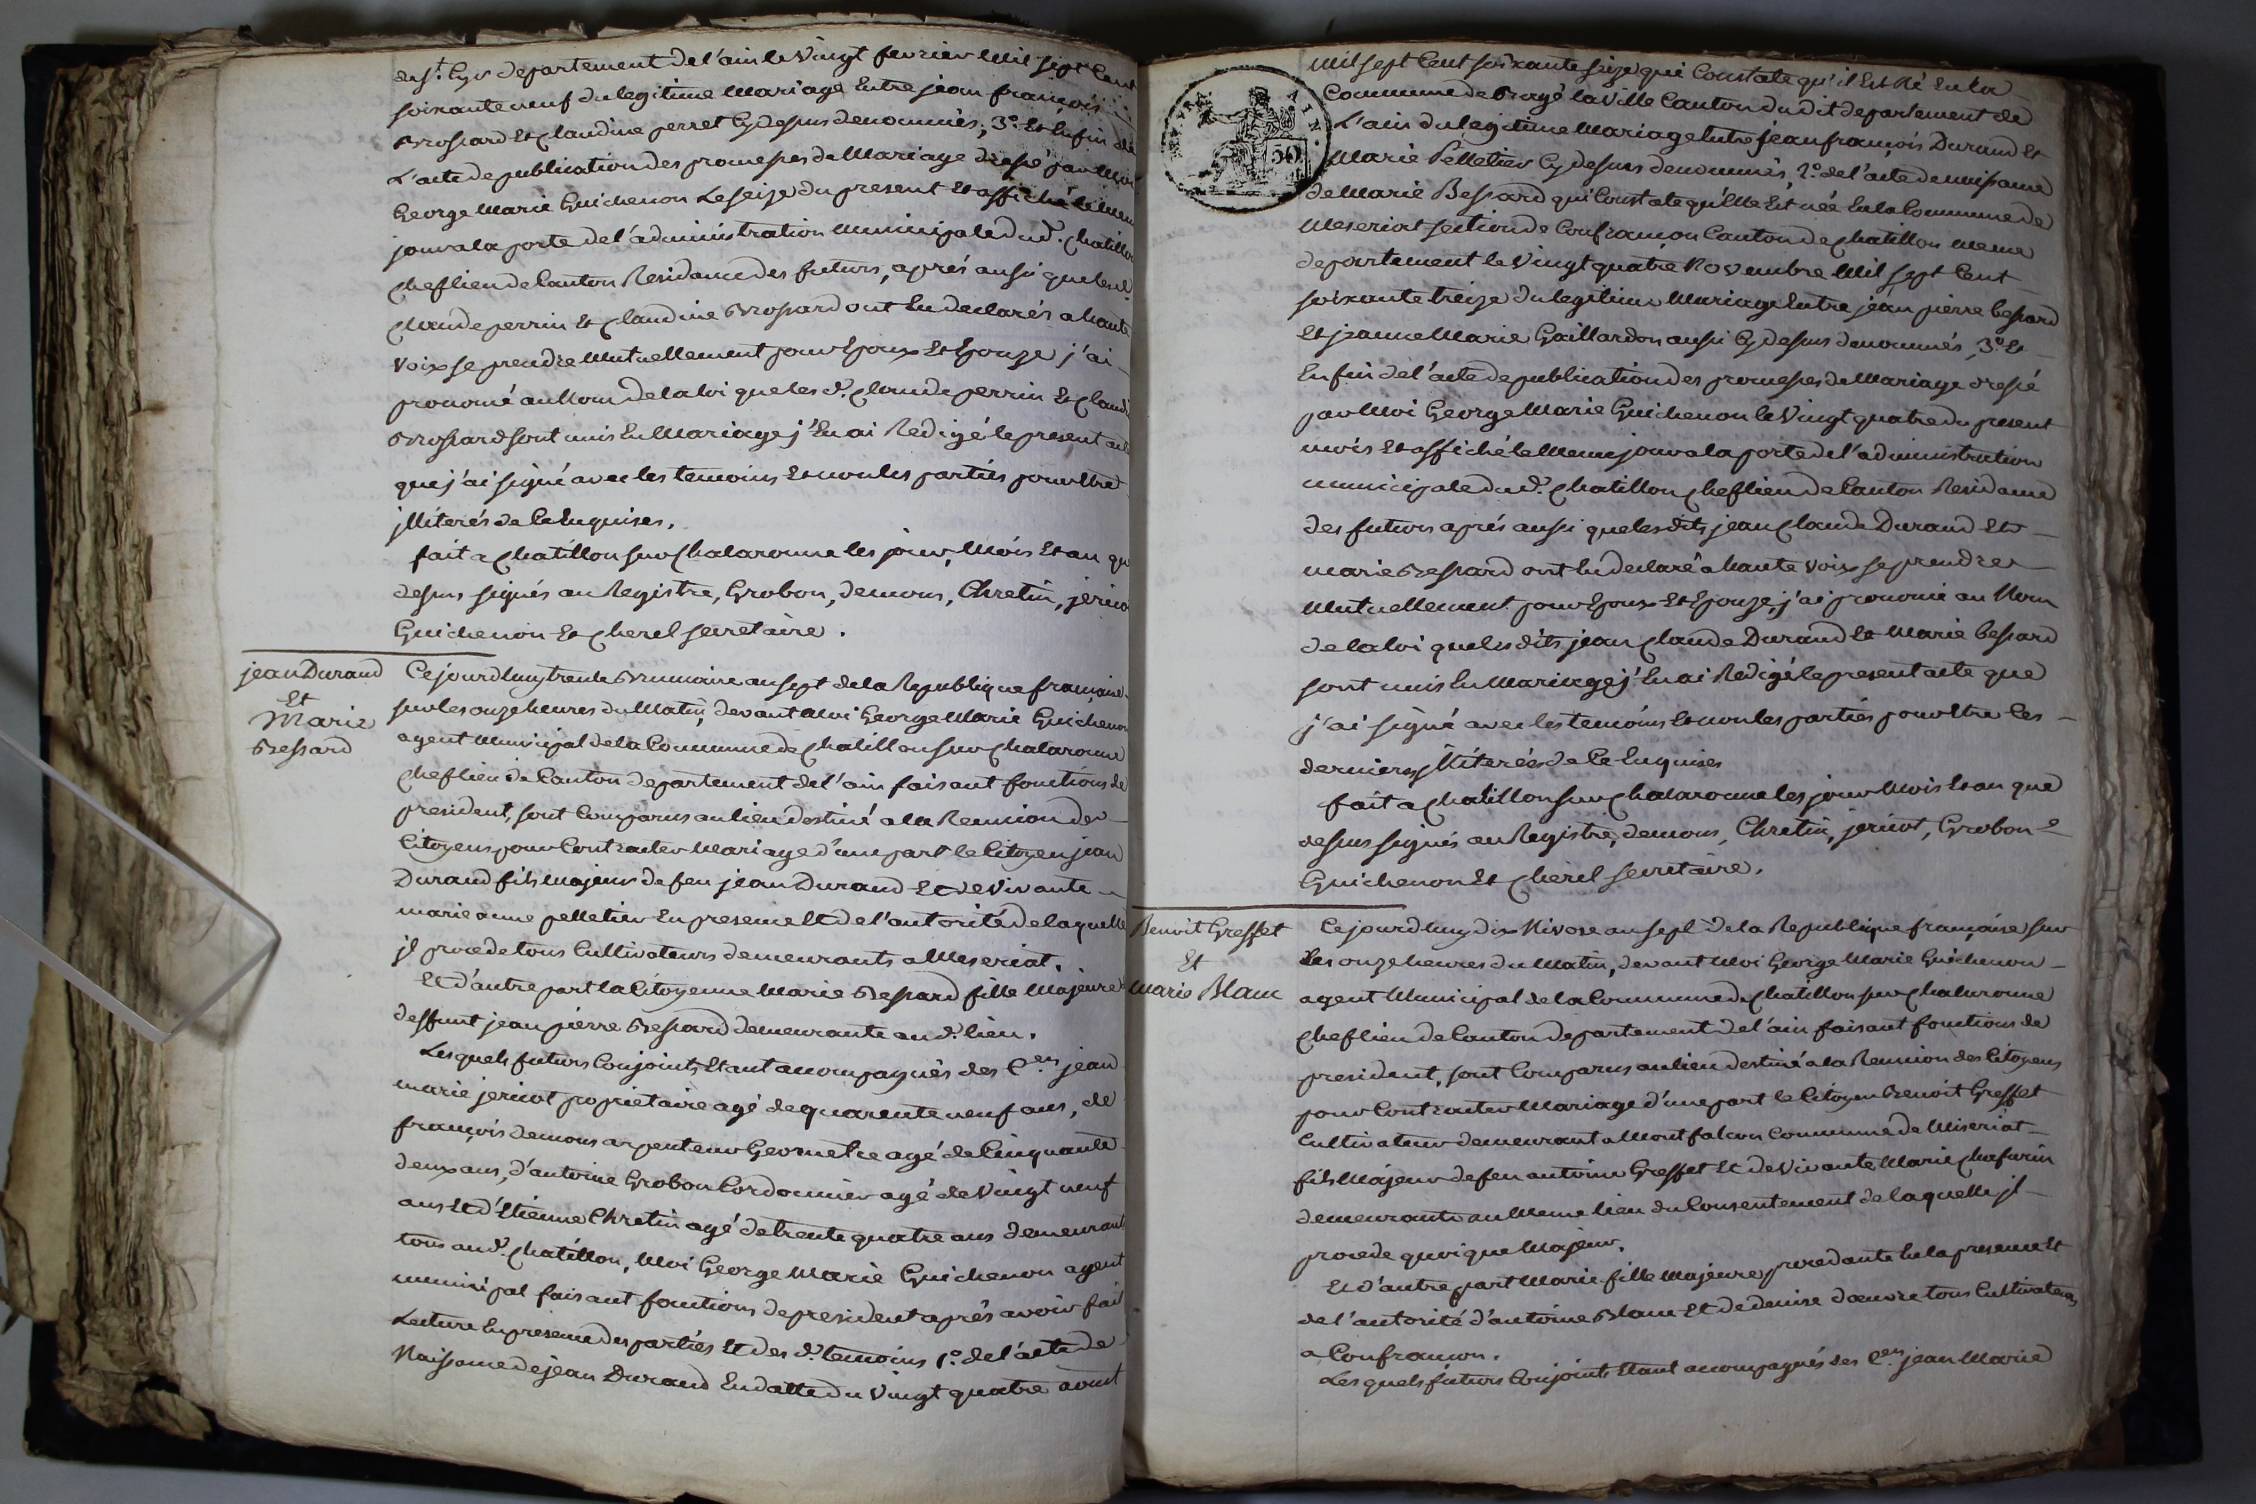 de st. Cyr departement de l'ain le vingt fevrier mil sept Cent
soixante neuf du legitime mariage Entre jean françois
Brossard Et Claudine perret Cy dessus denommés, 3°. Et Enfin de
L'acte de publication des promesses de Mariage dressé par Moi
George Marie Guichenon Le seize du present Et affiché le meme
jour a la porte de l'administration municipale dud. Chatillon
Cheflieu de Canton Residance des futurs, aprés aussi que lesd.
Claude perrin Et Claudine Brossard ont Eu declarés a haute
voix se prendre Mutuellement pour Epoux Et Epouze j'ai
prononé au Nom de la loi que les d. Claude perrin Et Claud
Brossard sont unis En Mariage j'En ai Redigé le present acte
que j'ai signé avec les temoins Et non les partiés pour Etre
jlliterés de Ce Enquises.
fait a Chatillon sur Chalaronne les jour, Mois Et an que
dessus signés au Registre, Grobon, demons, Chretin, jericot
Guichenon Et Cherel secretaire.
jean Durand
Et
Marie
Bessard
Ce jourd'huy trente Brumaire an sept de la Republique française
sur les onze heures du Matin, devant Moi George Marie Guichenon
agent Municipal de la Commune de Chatillon sur Chalaronne
Cheflieu de Canton departement de l'ain faisant fonctions de
president, sont Comparus au lieu destiné a la Reunion des
Citoyens pour Contracter Mariage d'une part le Citoyen jean
Durand fils Majeur de feu jean Durand Et de vivante
marie anne pelletier En presence Et de l'autorité de laquelle
jl procede tous Cultivateurs demeurants a Meseriat.
Et d'autre part la Citoyenne Marie Bessard fille Majeure
deffunt jean pierre Bessard demeurante aud. lieu.
Lesquels futurs Conjoints Etant accompagnés des C.ens jean
marie jericot popriétaire agé de quarente neuf ans, de
françois demons arpenteur Geometre agé de Cinquante
deux ans, d'antoine Grobon Cordonnier agé de vingt neuf
ans Et d'Etienne Chretin agé de trente quatre ans demeurant
tous aud. Chatillon, Moi George Marie Guichenon agent
municipal faisant fonctions de president aprés avoir fait
Lecture En presence des partiés Et des d. temoins 1°. de l'acte de
Naissance de jean Durand En datte du vingt quatre aout
mil sept Cent soixante seize qui Constate qu'il Est Né En la
Commune de Bragé la ville Canton du dit departement de
L'ain du legitime Mariage Entre jean françois Durand Et
Marie Pelletier Cy dessus denommés, 2°. de l'acte de naissance
de Marie Bessard qui Constate qu'Elle Est née En la Commune de
Meseriat section de Confrançon Canton de Chatillon meme
departement le vingt quatre Novembre Mil sept Cent
soixante treize du legitime Mariage Entre jean pierre bessard
Et jeanne Marie Gaillardon aussi Cy dessus denommés, 3°. Et
Enfin de l'acte de publication des promesses de Mariage dressé
par Moi George Marie Guichenon le vingt quatre du present
mois Et affiché le Meme jour a la porte de l'administration
municipale dud. Chatillon Cheflieu de Canton Residance
des futurs aprés aussi que les dits jean Claude Durand Et
marie Bessard ont Eu declaré a haute voix se prendre
Mutuellement pour Epoux Et Epouze, j'ai prononié au Nom
de la loi que les dits jean Claude Durand Et Marie bessard
sont unis En Mariage j'En ai Redigé le present acte que
j'ai signé avec les temoins Et non les partiés pour Etre les
derniers jlliterés de Ce Enquises
fait a Chatillon sur Chalaronne les jour Mois Et an que
dessus signés au Registre, demons, Chretin, jericot, Grobon
Guichenon Et Cherel secretaire.
Benoit Greffet
Et
Marie Blanc
Ce jourd'huy dix Nivose an sept de la Republique française sur
Les onze heures du Matin, devant Moi George Marie Guichenon
agent Municipal de la Commune de Chatillon sur Chalaronne
Cheflieu de Canton departement de l'ain faisant fonctions de
president, sont Comparus au lieu destiné a la Reunion des Citoyens
pour Contracter Mariage d'une part le Citoyen Benoit Greffet
Cultivateur demeurant a Montfalcon Commune de Miseriat
fils Majeur de feu antoine Greffet Et de vivante Marie Chafurin
demeurante au Meme lieu du Consentement de laquelle jl
procede quoique Majeur.
Et d'autre part Marie fille Majeure procedante En la presence Et
de l'autorité d'antoine Blanc Et de denise doeuvre tous Cultivateurs
a Confrancon.
Les quels futurs Conjoints Etant accompagnés des C.ens jean Marie